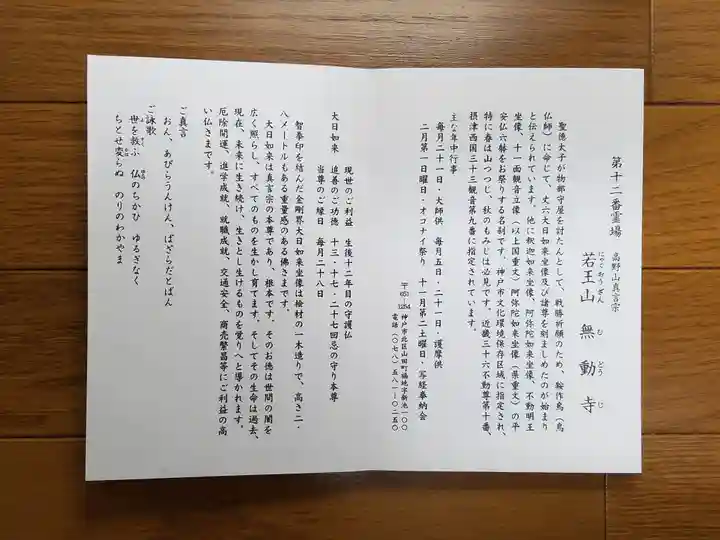 第十二番霊場
高野山真言宗
にゃくおうざん
若王山
む どう じ
無動寺
聖徳太子が物部守屋を討たんとして、戦勝祈願のため、鞍作鳥(鳥
仏師)に命じて、丈六大日如来坐像及び諸尊を刻ましめたのが始まり
と伝えられています。他に釈迦如来坐像、阿弥陀如来坐像、不動明王
坐像、十一面観音立像(以上国重文)阿弥陀如来坐像(県重文)の平
安仏六躰をお祭りする名刹です。神戸市文化環境保存区域に指定され、
特に春は山つつじ、秋のもみじは必見です。近畿三十六不動尊第十番、
摂津西国三十三観音第九番に指定されています。
主な年中行事
毎月二十一日・大師供 毎月五日・二十一日・護摩供
二月第一日曜日・オコナイ祭り 十一月第二土曜日・写経奉納会
〒651-1254 神戸市北区山田町福地字新池一〇〇
電話(〇七八)五八一-〇二五〇
大日如来
現世のご利益 生後十二年目の守護仏
追善のご功徳 十三・十七・二十七回忌の守り本尊
当尊のご縁日 毎月二十八日
智拳印を結んだ金剛界大日如来坐像は桧材の一木造りで、高さ二・
八メートルもある重量感のある佛さまです。
大日如来は真言宗の本尊であり、根本です。そのお徳は世間の闇を
広く照らし、すべてのものを生かし育てます。そしてその生命は過去、
現在、未来に生き続け、生きとし生けるものを覚りへと導かれます。
厄除開運、進学成就、就職成就、交通安全、商売繁昌等にご利益の高
い仏さまです。
ご真言
おん、あびらうんけん、ばざらだとばん
ご詠歌
世を救ふ 仏のちかひ ゆるぎなく
ちとせ変らぬ のりのわかやま